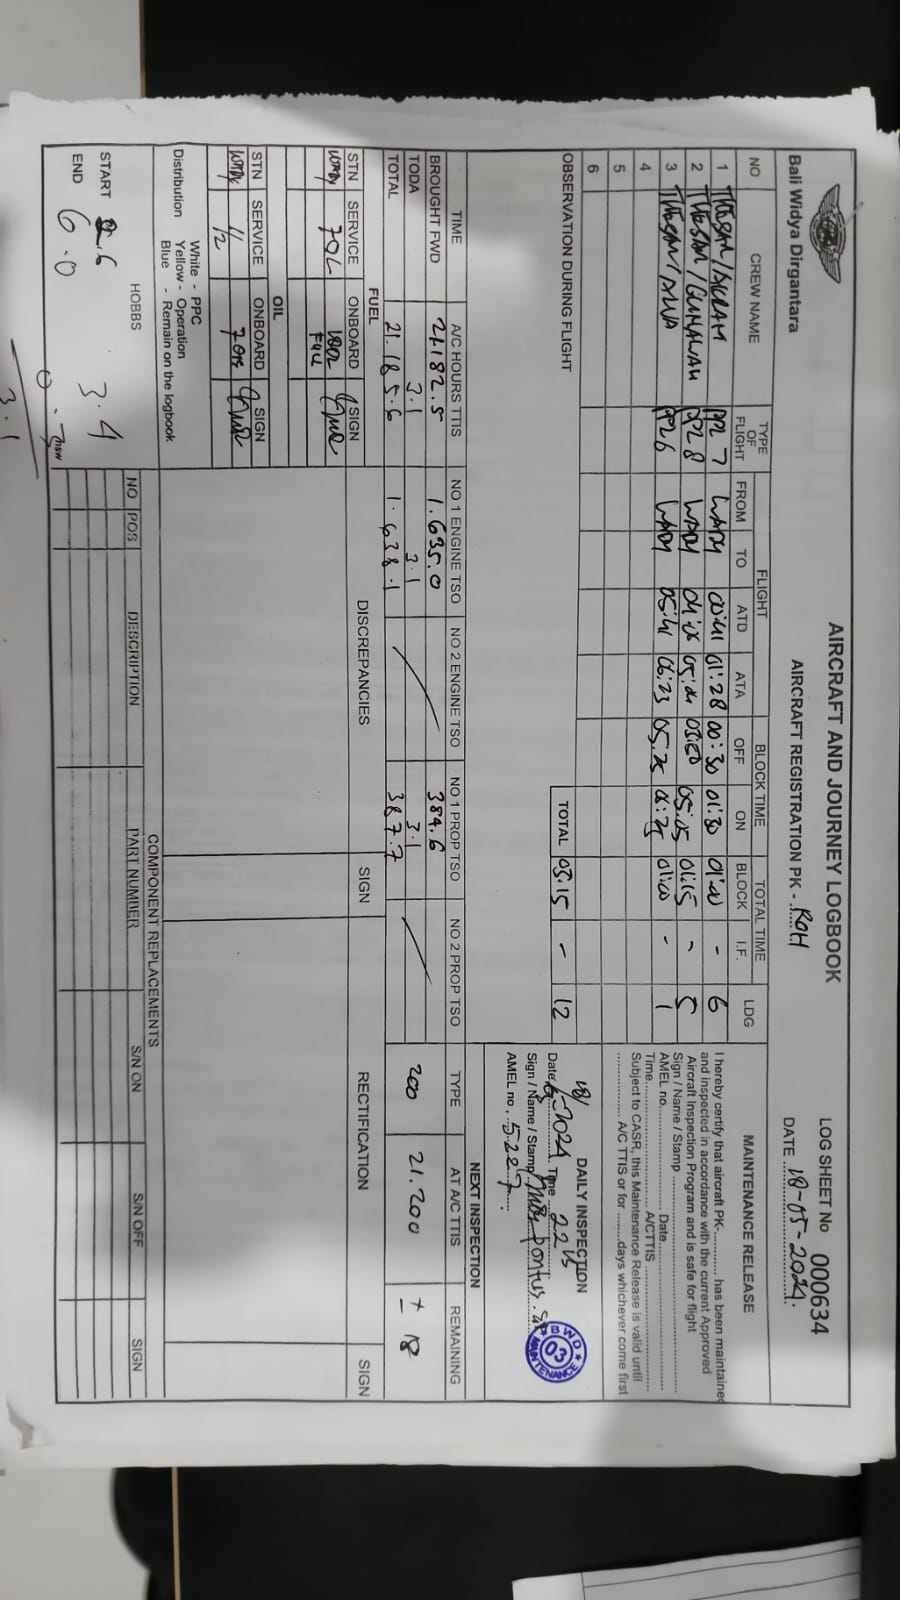 Bali Widya Dirgantara
AIRCRAFT AND JOURNEY LOGBOOK
AIRCRAFT REGISTRATION PK - ROH
LOG SHEET No 000634
DATE 18-05-2024.
NO CREW NAME TYPE OF FLIGHT FLIGHT BLOCK TIME TOTAL TIME LDG
FROM TO ATD ATA OFF ON BLOCK I.F.
1 PPL 7 WADY 00:41 01:28 00:30 01:30 01:00 - 6
2 PPL 8 WADY 05:05 01:15 - 5
3 WADY 05:41 06:23 05:25 06:25 01:00 - 1
4
5
6
OBSERVATION DURING FLIGHT
TOTAL 03.15 - 12
MAINTENANCE RELEASE
I hereby certify that aircraft PK-............ has been maintained
and inspected in accordance with the current Approved
Aircraft Inspection Program and is safe for flight
Sign / Name / Stamp
AMEL no. Date
Time A/CTTIS
Subject to CASR, this Maintenance Release is valid until
A/C TTIS or for ........days whichever come first
DAILY INSPECTION
Date Time 22
Sign / Name / Stamp
AMEL no. 5227
BWD 03 MAINTENANCE
TIME A/C HOURS TTIS NO 1 ENGINE TSO NO 2 ENGINE TSO NO 1 PROP TSO NO 2 PROP TSO
BROUGHT FWD 21.182.5 1.635.0 384.6
TODA 3.1 3.1 3.1
TOTAL 21.185.6 1.638.1 387.7
NEXT INSPECTION
TYPE AT A/C TTIS REMAINING
200 21.200 ± 18
FUEL
STN SERVICE ONBOARD SIGN
70L
OIL
STN SERVICE ONBOARD SIGN
1/2
DISCREPANCIES SIGN RECTIFICATION SIGN
Distribution White - PPC
Yellow - Operation
Blue - Remain on the logbook
COMPONENT REPLACEMENTS
NO POS DESCRIPTION PART NUMBER S/N ON S/N OFF SIGN
HOBBS
START 2.6 3.4
END 6.0
3.1